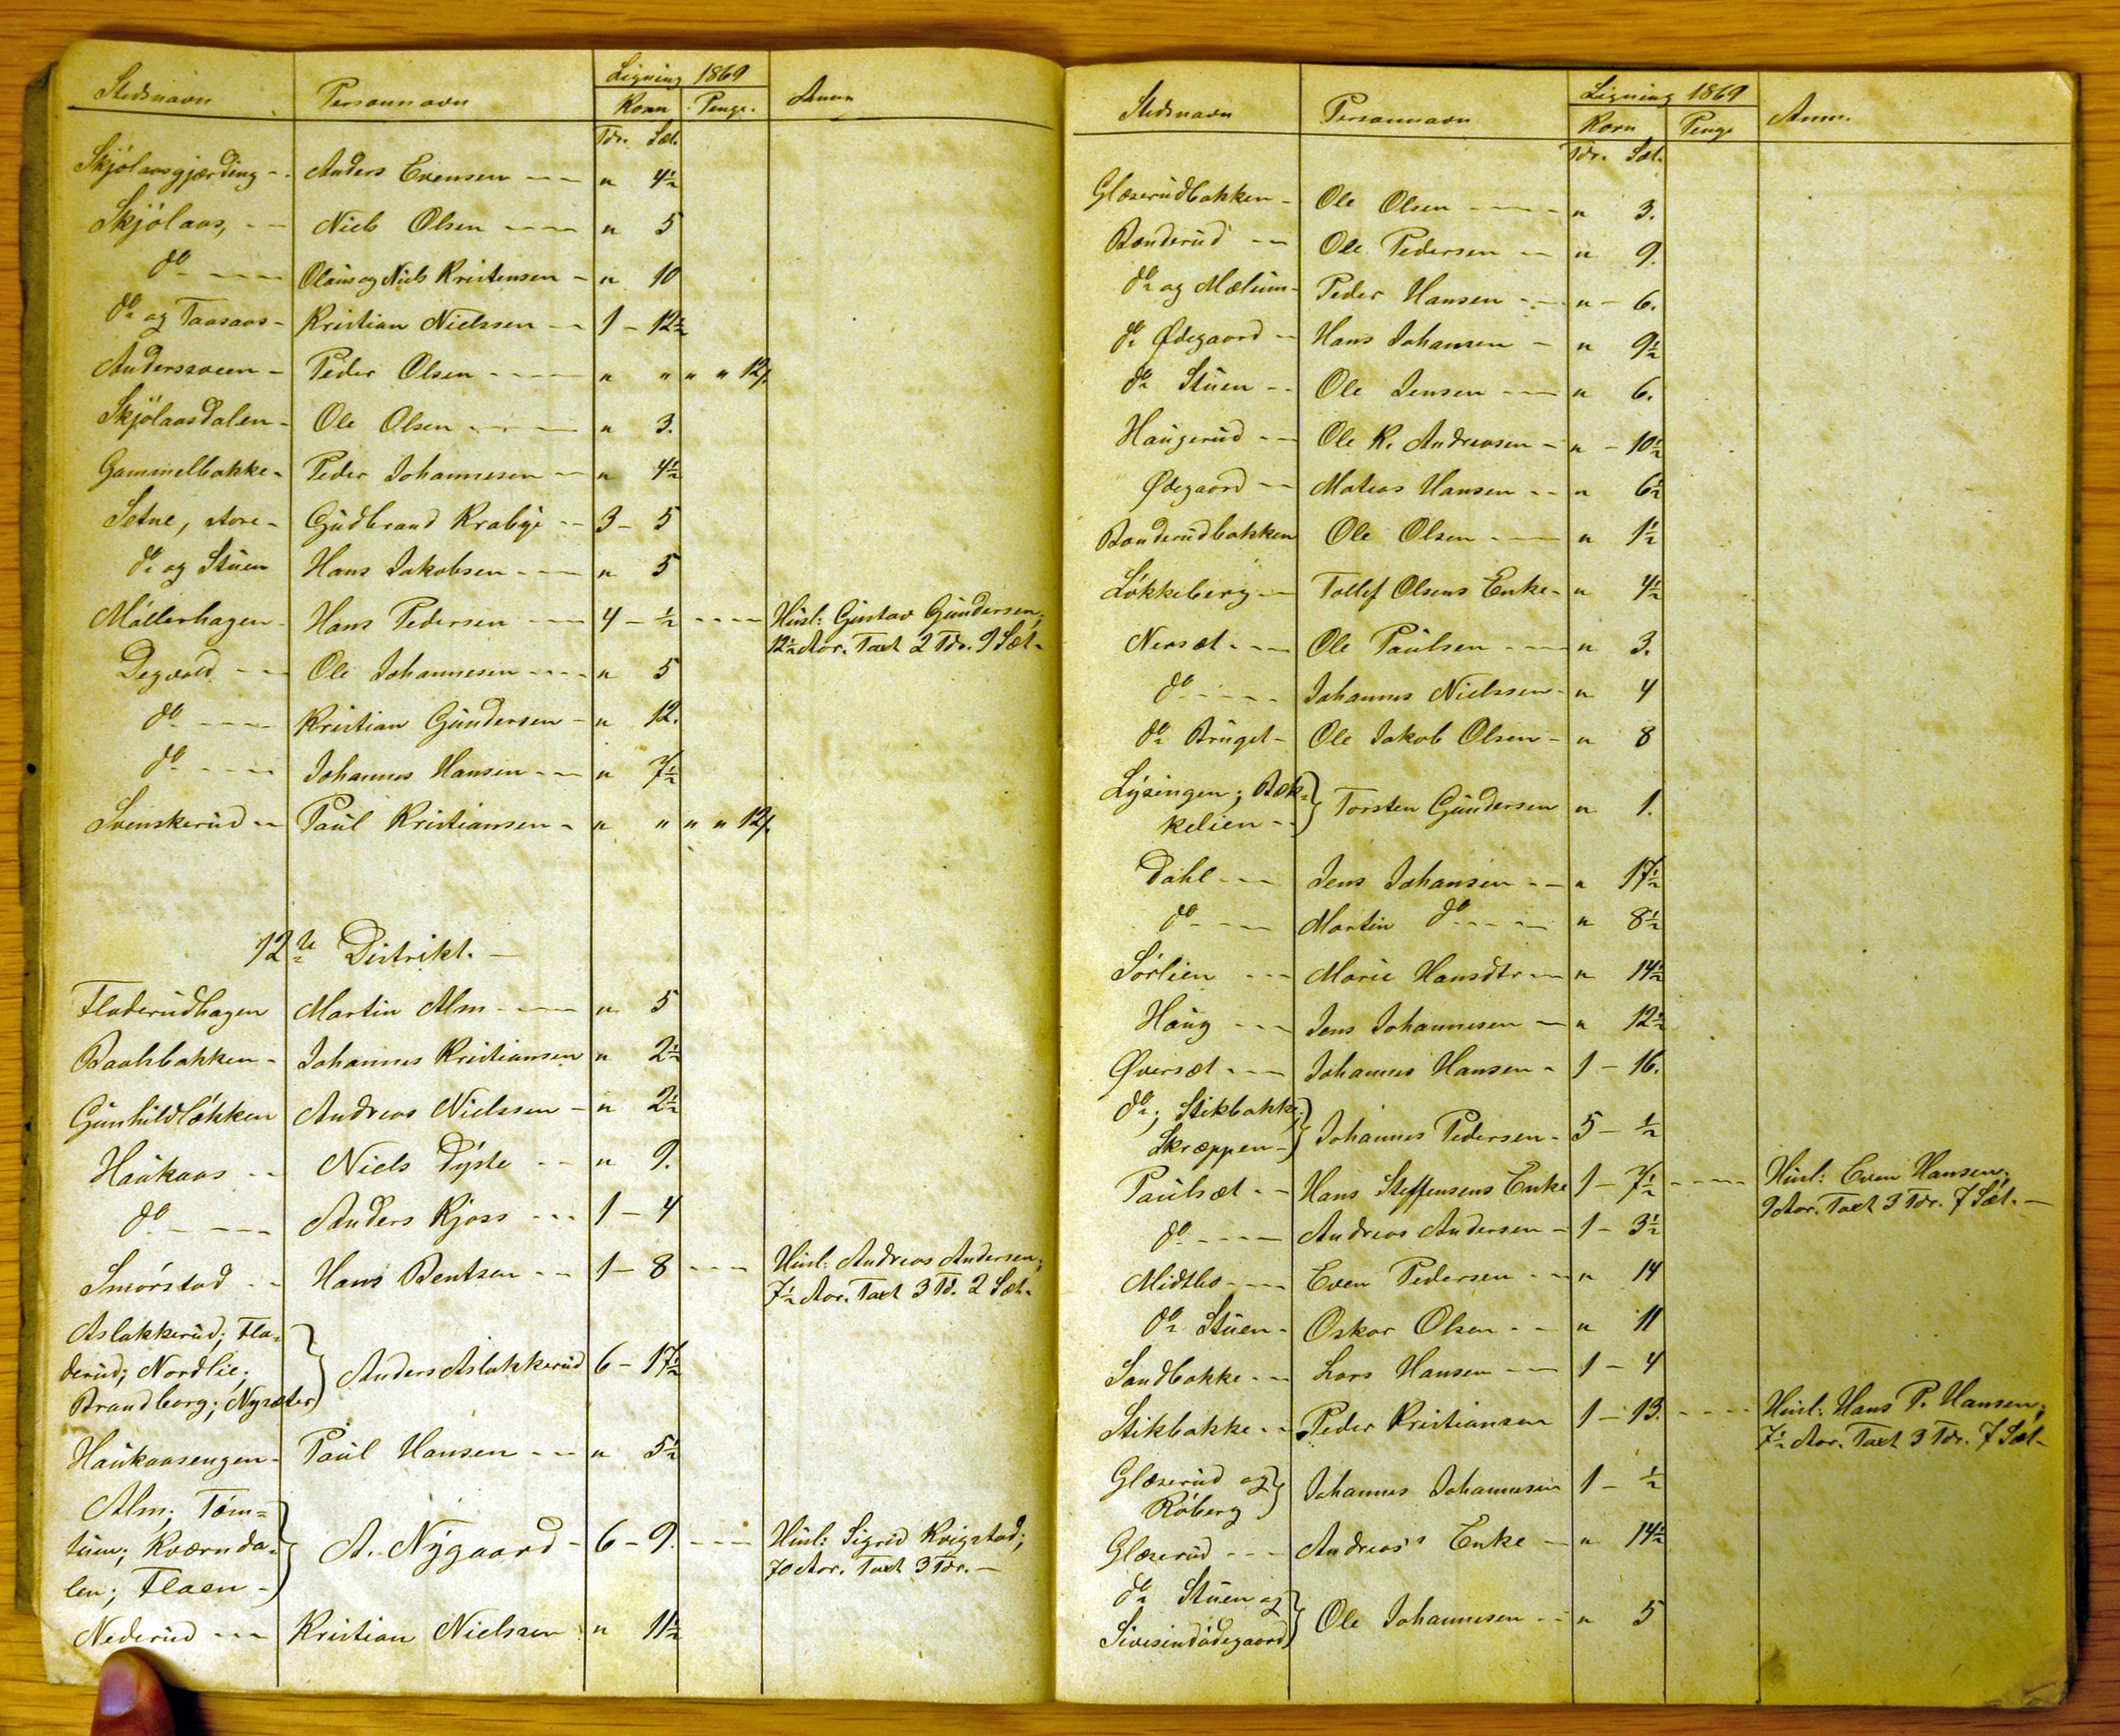 Stedsnavn Personnavn Ligning 1869 Anm.
Korn Penge.
Tdr. Sæt.
Skjólaasgjærding - Anders Evensen - - - " 4½
Skjólaas, - - Niels Olsen - - - " 5
do - - - Olaus og Niels Kristensen - " 10
do og Taasaas - Kristian Nielssen - - 1 - 12½
Anderssveen - Peder Olsen - - - " " " " 12/.
Skjólaasdalen - Ole Olsen - - - " 3.
Gammelbakke - Peder Johannesen - - " 4½
Setne, store - Gudbrand Krabye - - 3 - 5
do og Stuen Hans Jakobsen - - - " 5
Móllerhagen - Hans Pedersen - - - 4 - ½ - - - - Husl: Gustav Gundersen;
12½ Aar. Taxt 2 Tdr. 9 Sæt. -
Degvold - - Ole Johannesen - - - " 5
do - - - Kristian Gundersen - " 12.
do - - - Johannes Hansen - - - " 7½
Svenskerud - - Paul Kristiansen - " " " " 12/.
12te Distrikt. -
Fladerudhagen Martin Alm - - - " 5
Baahbakken - Johannes Kristiansen " 2½
Gunhildlókken Andreas Nielssen - " 2½
Haukaas - - Niels Dyste - - " 9.
do - - - Anders Kjoss - - - 1 - 4
Smórstad - - Hans Bentsen - - 1 - 8 - - - Husl: Andreas Andersen;
7½ Aar. Taxt 3 Td. 2 Sæt. -
Aslakkerud; Fla-
derud; Nordlie; Anders Aslakkerud 6 - 17½
Brandborg; Nysæter
Haukaasengen - Paul Hansen - - - " 5½
Alm; Tóm=
tum; Kværnda- A. Nygaard - 6 - 9. - - - Husl: Sigrid Kvigstad;
len; Flaen - 70 Aar. Taxt 3 Tdr. -
Nederud - - - Kristian Nielssen " 11½
Stedsnavn Personnavn Ligning 1869 Anm.
Korn Penge
Tdr. Sæt.
Glæserudbakken - Ole Olsen - - - " 3.
Bænderud - - Ole Pedersen - - " 9.
do og Mælum - Peder Hansen - - " - 6.
do Ødegaard - - Hans Johansen - " 9½
do Stuen - - Ole Jensen - - - " 6.
Haugerud - - Ole K. Andreasen - " - 10½
Ødegaard - - Mateas Hansen - - " 6½
Bænderudbakken Ole Olsen - - - " 1½
Lókkeberg - - Tollef Olsens Enke - " 4½
Nersæt - - - Ole Paulsen - - - " 3.
do - - - - Johannes Nielssen - " 4
do Bruget - Ole Jakob Olsen - " 8
Lysingen; Bæk-
kelien - - Torsten Gundersen " 1.
Dahl - - - Jens Johansen - - " 17½
do - - - Martin do - - - " 8½
Sórlien - - - Marie Hansdtr - - " 14½
Haug - - - Jens Johannesen - " 12½
Øversæt - - - Johannes Hansen - 1 - 16.
do; Stikbakke;
Skræppen - Johannes Pedersen - 5 - ½
Paulsæt - - Hans Steffensens Enke 1 - 7½ - - - - Husl: Even Hansen;
9 Aar. Taxt 3 Tdr. 7 Sæt. -
do - - - - Andreas Andersen - 1 - 3½
Midtbo - - - Even Pedersen - - " 14
do Stuen - Oskar Olsen - - " 11
Sandbakke - - - Lars Hansen - - - 1 - 4
Stikbakke - - Peder Kristiansen 1 - 13. - - - - Husl: Hans P. Hansen;
7½ Aar. Taxt 3 Tdr. 7 Sæt -
Glæserud og
Róberg Johannes Johannesen 1 - ½
Glæserud - - - Andreas's Enke - " 14½
do Stuen og
Sivesindódegaard Ole Johannesen - - " 5